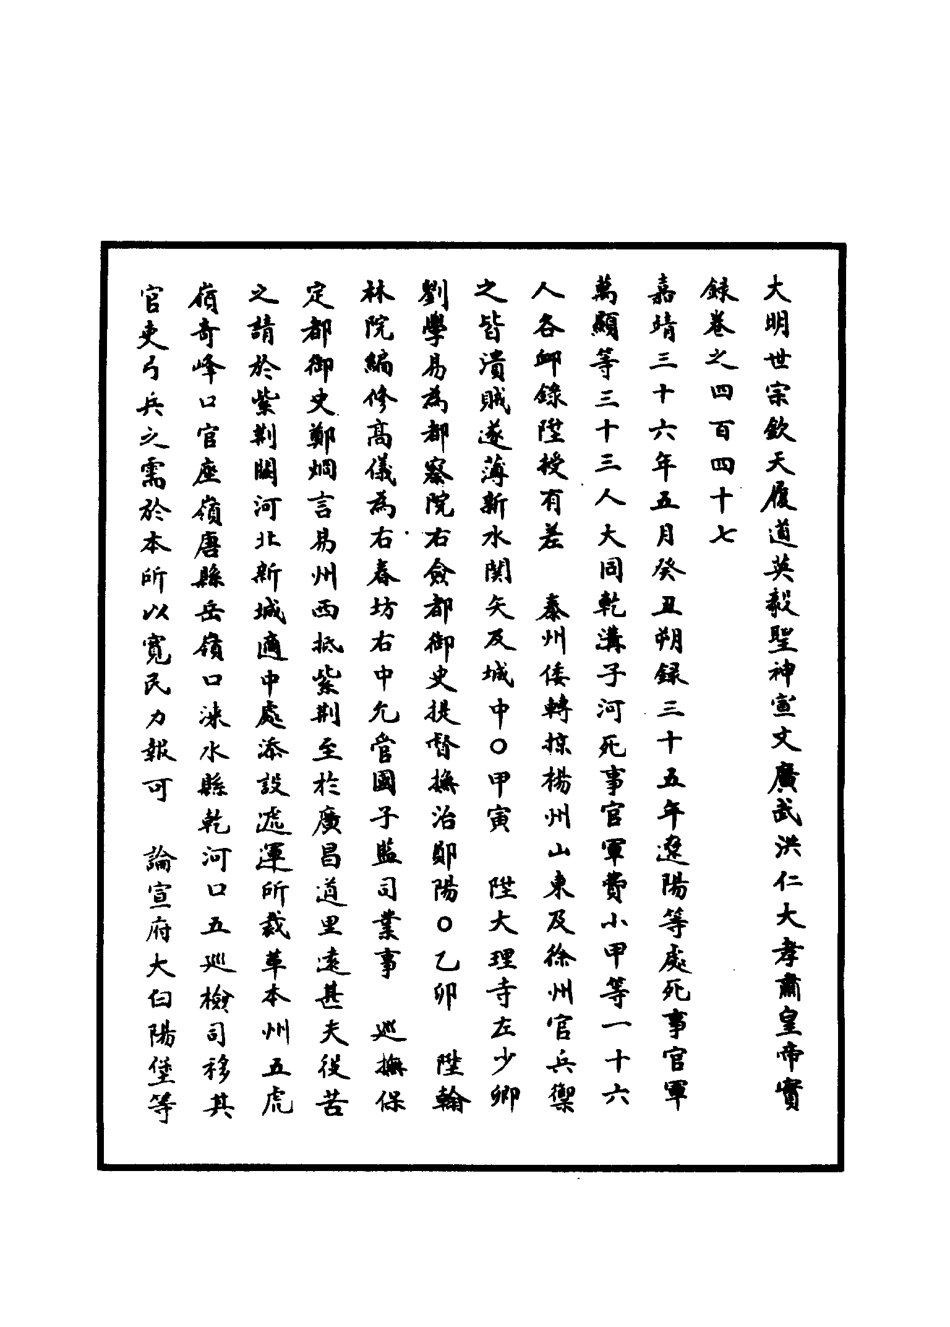 大明世宗欽天履道英毅聖神宣文廣武洪仁大孝肅皇帝實
録卷之四百四十七
嘉靖三十六年五月癸丑朔録三十五年遼陽等處死事官軍
萬顯等三十三人大同乾溝子河死事官軍費小甲等一十六
人各卹錄陞授有差 泰州倭轉掠楊州山東及徐州官兵禦
之皆潰賊遂薄新水関矢及城中○甲寅 陞大理寺左少卿
劉學易為都察院右僉都御史提督撫治鄖陽○乙卯 陞翰
林院編修高儀為右春坊右中允管國子監司業事 廵撫保
定都御史鄭烱言易州西抵紫荆至於廣昌道里遠甚夫役苦
之請於紫荆関河北新城適中處添設遞運所裁革本州五虎
嶺奇峰口官座嶺唐縣岳嶺口淶水縣乾河口五廵檢司移其
官吏弓兵之需於本所以寬民力報可 論宣府大白陽堡等